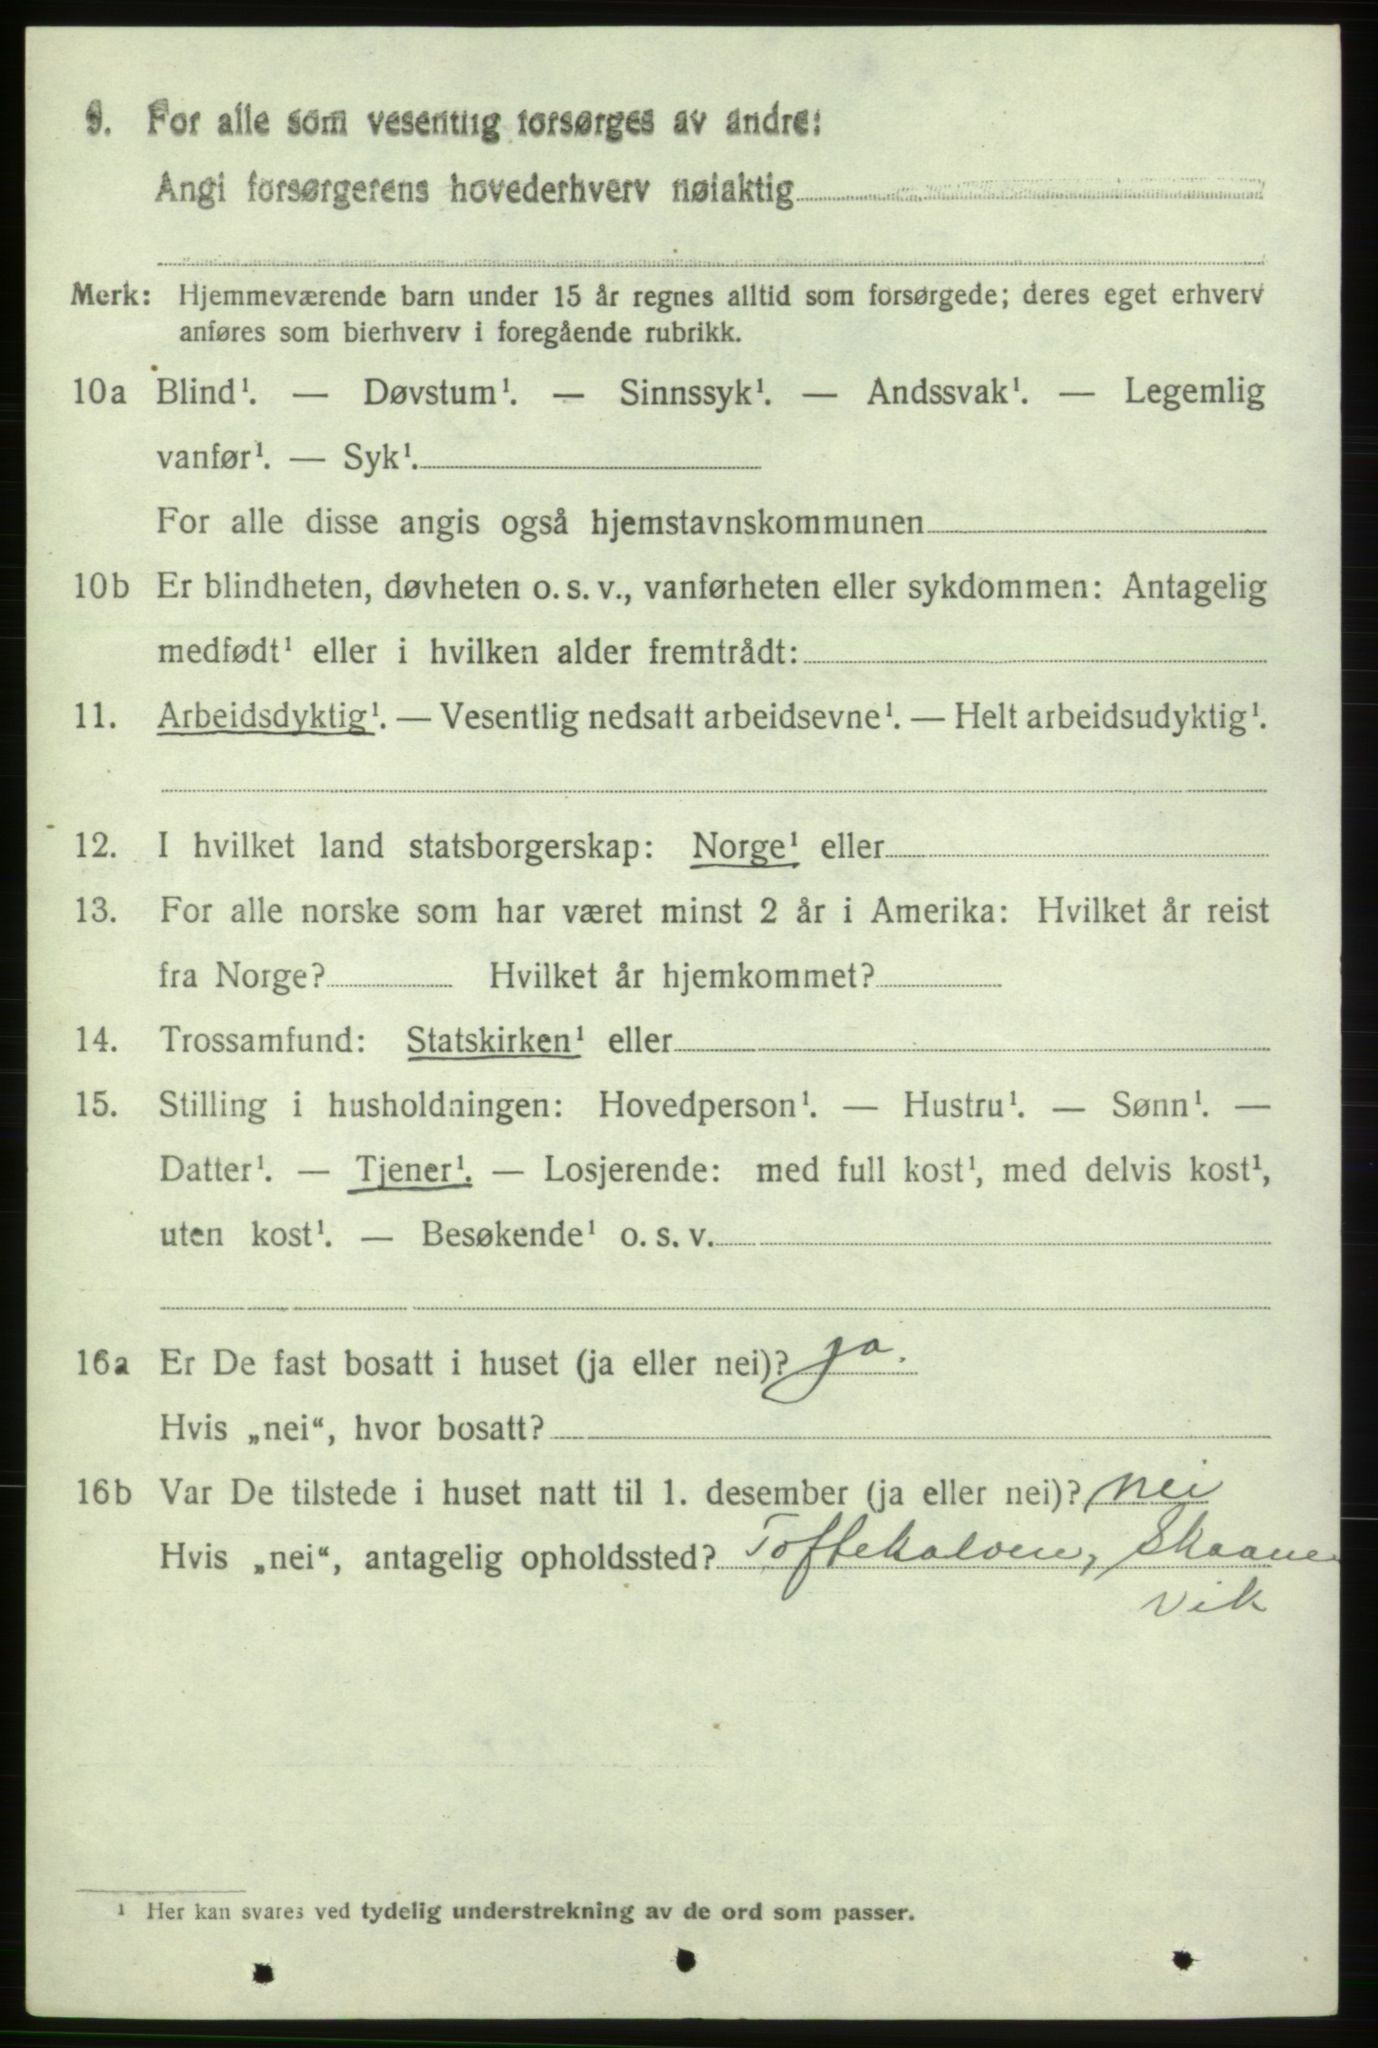 9. For alle som vesentlig forsørges av andre:
Angi forsørgerens hovederhverv nøiaktig
Merk: Hjemmeværende barn under 15 år regnes alltid som forsørgede; deres eget erhverv
anføres som bierhverv i foregående rubrikk.
10a Blind¹. — Døvstum¹. — Sinnssyk¹. — Andssvak¹. — Legemlig
vanfør¹. — Syk¹.
For alle disse angis også hjemstavnskommunen
10b Er blindheten, døvheten o. s. v., vanførheten eller sykdommen: Antagelig
medfødt¹ eller i hvilken alder fremtrådt:
11. Arbeidsdyktig¹. — Vesentlig nedsatt arbeidsevne¹. — Helt arbeidsudyktig¹.
12. I hvilket land statsborgerskap: Norge¹ eller
13. For alle norske som har været minst 2 år i Amerika: Hvilket år reist
fra Norge? Hvilket år hjemkommet?
14. Trossamfund: Statskirken¹ eller
15. Stilling i husholdningen: Hovedperson¹. — Hustru¹. — Sønn¹. —
Datter¹. — Tjener¹. — Losjerende: med full kost¹, med delvis kost¹,
uten kost¹. — Besøkende¹ o. s. v.
16a Er De fast bosatt i huset (ja eller nei)? ja.
Hvis „nei“, hvor bosatt?
16b Var De tilstede i huset natt til 1. desember (ja eller nei)? nei
Hvis „nei“, antagelig opholdssted? Toftekalven, Skaane-
vik
¹ Her kan svares ved tydelig understrekning av de ord som passer.